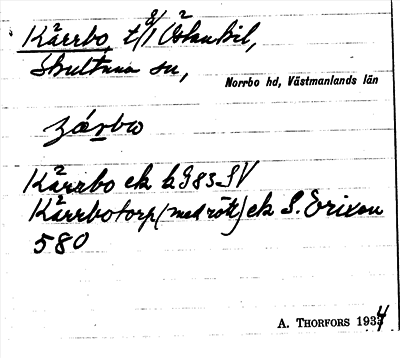 Kärrbo, t/1 Östanbil,
Skultuna sn,
Norrbo hd, Västmanlands län
Kärrbo ek b983 SV
Kärrbotorp (med rött) ek S. Erixon
580
A. THORFORS 1934